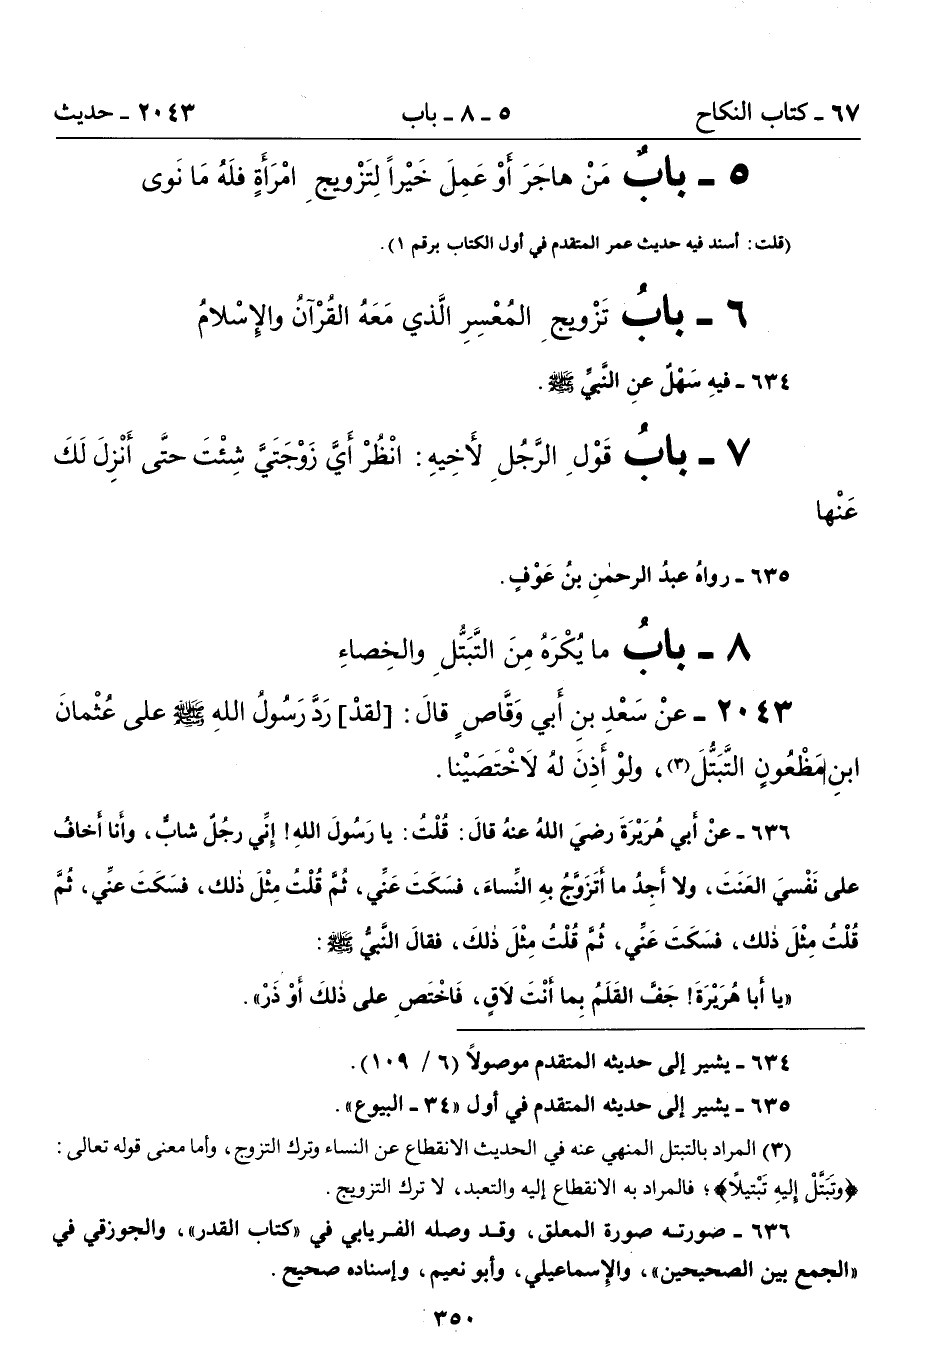 ٦٧ ـ كتاب النكاح ٥ ـ ٨ ـ باب ٢٠٤٣ ـ حديث
٥ ـ بابٌ مَنْ هاجَرَ أَوْ عَمِلَ خَيْراً لِتَزْويجِ امْرَأَةٍ فلَهُ مَا نَوى
(قلت: أسند فيه حديث عمر المتقدم في أول الكتاب برقم ١).
٦ ـ بابُ تَزْويجِ المُعْسِرِ الَّذي مَعَهُ القُرْآنُ والإِسْلامُ
٦٣٤ ـ فيهِ سَهْلٌ عنِ النَّبيِّ ﷺ.
٧ ـ بابُ قَوْلِ الرَّجُلِ لأَخِيهِ: انْظُرْ أَيَّ زَوْجَتَيَّ شِئْتَ حتَّى أَنْزِلَ لَكَ
عَنْها
٦٣٥ ـ رواهُ عبدُ الرحمٰنِ بنُ عَوْفٍ.
٨ ـ بابُ ما يُكْرَهُ مِنَ التَّبَتُّلِ والخِصاءِ
٢٠٤٣ ـ عنْ سَعْدِ بنِ أَبي وَقَّاصٍ قالَ: [لقدْ] رَدَّ رَسُولُ اللهِ ﷺ على عُثْمانَ
ابنِ مَظْعُونٍ التَّبَتُّلَ(٣)، ولوْ أَذِنَ لهُ لَاخْتَصَيْنا.
٦٣٦ ـ عنْ أَبي هُرَيْرَةَ رضيَ اللهُ عنهُ قالَ: قُلْتُ: يا رَسُولَ اللهِ! إنِّي رجُلٌ شابٌّ، وأنا أخافُ
على نَفْسيَ العَنَتَ، ولا أجِدُ ما أتَزَوَّجُ بهِ النِّساءَ، فسَكَتَ عَنِّي، ثُمَّ قُلْتُ مِثْلَ ذلكَ، فسَكَتَ عنِّي، ثُمَّ
قُلْتُ مِثْلَ ذٰلك، فسَكَتَ عَنِّي، ثُمَّ قُلْتُ مِثْلَ ذلكَ، فقالَ النَّبيُّ ﷺ:
«يا أبا هُرَيْرَةَ! جَفَّ القَلَمُ بِما أنْتَ لاقٍ، فَاخْتَصِ على ذٰلكَ أَوْ ذَرْ».
٦٣٤ ـ يشير إلى حديثه المتقدم موصولاً (٦ / ١٠٩).
٦٣٥ ـ يشير إلى حديثه المتقدم في أول «٣٤ ـ البيوع».
(٣) المراد بالتبتل المنهي عنه في الحديث الانقطاع عن النساء وترك التزوج، وأما معنى قوله تعالى:
﴿وتَبَتَّلْ إليهِ تَبْتيلًا﴾؛ فالمراد به الانقطاع إليه والتعبد، لا ترك التزويج.
٦٣٦ ـ صورته صورة المعلق، وقد وصله الفريابي في «كتاب القدر»، والجوزقي في
«الجمع بين الصحيحين»، والإسماعيلي، وأبو نعيم، وإسناده صحيح.
٣٥٠